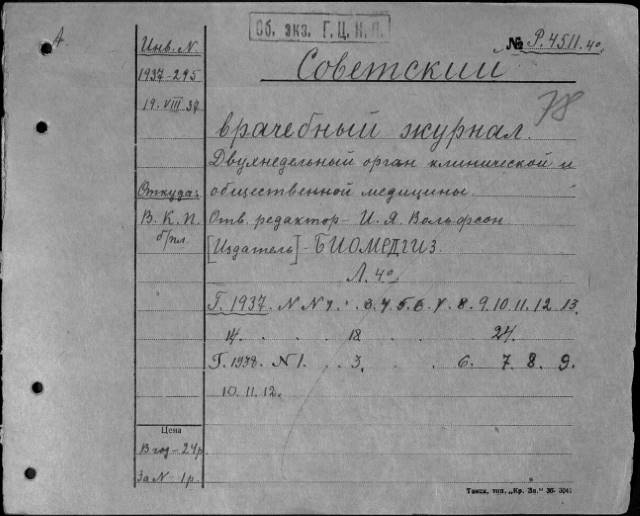 Об. экз. Г.Ц.К.П.
№ Р.4511.4º
Инв. N
1937-295
19. VIII 37
Советский
78
врачебный журнал.
Двухнедельный орган клинической и
Откуда:
общественной медицины.
В. К. П.
б/пл.
Отв. редактор - И. Я. Вольфсон
[Издатель] - БИОМЕДГИЗ.
Л. 4º
Г. 1937. N N 1. . 3. 4. 5. 6. 7. 8. 9. 10. 11. 12. 13.
14. 18. 24.
Г. 1938. N 1. . . 3. . . . 6. 7. 8. 9.
10. 11. 12.
Цена
В год - 24 р
За N - 1 р.
Тамск. тип. „Кр. Зн." 36-